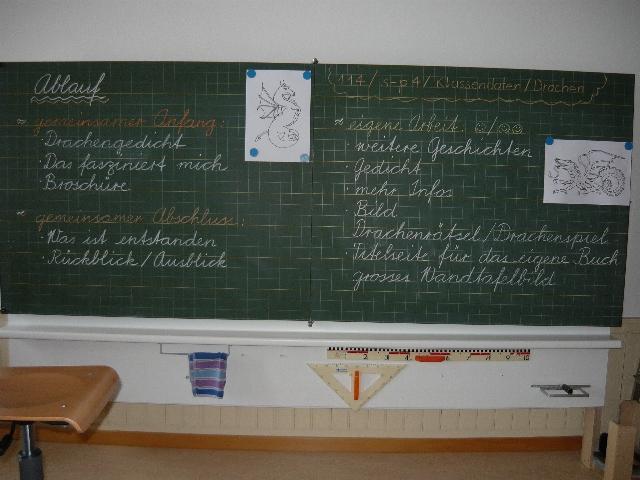 Ablauf
≈ gemeinsamer Anfang:
· Drachengedicht
· Das fasziniert mich
· Broschüre
≈ gemeinsamer Abschluss:
· Was ist entstanden
· Rückblick/Ausblick
114 / s-p4 / Klassendaten/Drachen
≈ eigene Arbeit:
· weitere Geschichten
· Gedicht
· mehr Infos
· Bild
Drachenrätsel/Drachenspiel
· Titelseite für das eigene Buch
grosses Wandtafelbild